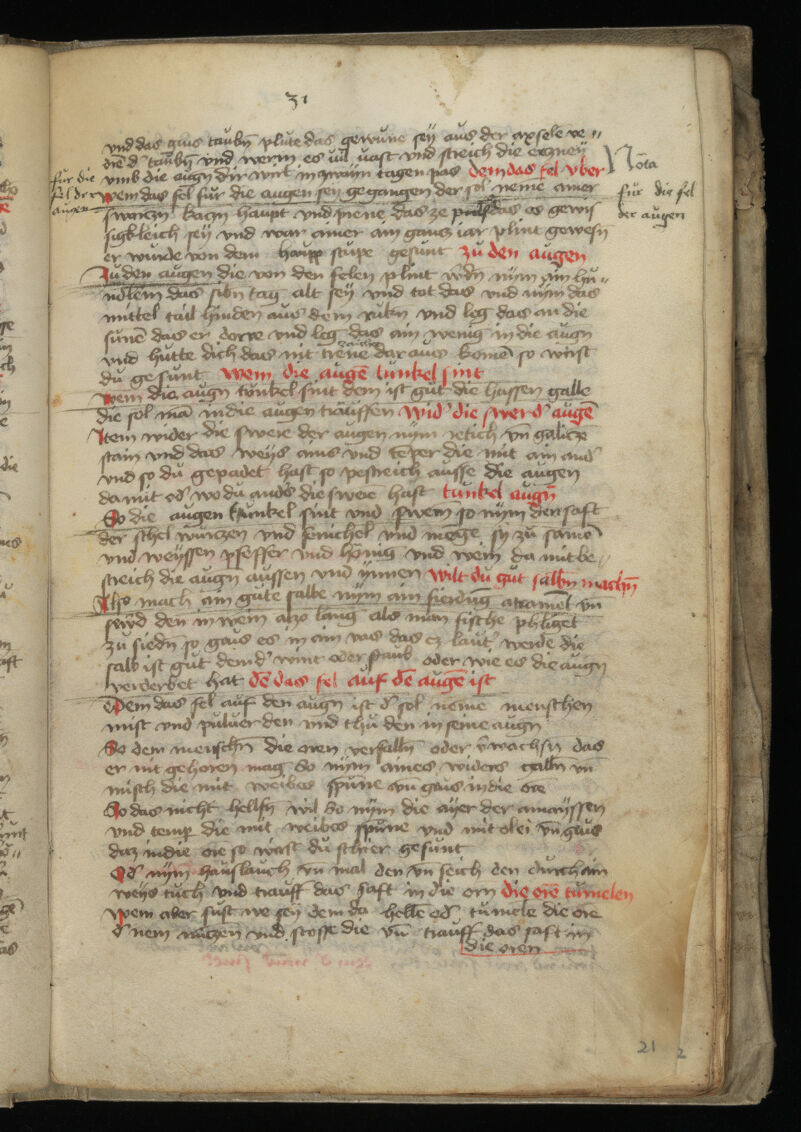 31
und das gius taubn plute das gewune sey aus der axselen ve„
dren d' taubn und werm es uil uast und streich die erzney
umb die augn dir wirt in zwain tagen pas dem das fel uber
Nota
für die
fel der
augen
Wem das fel für die augen sey gegangen der sol neme ainer
für die fel
der augen
swarczn kaczn haupt und prene das ze puluer das es gewis
sigkleich sey und war ainer ain gancz iar plint gewesn
er wurde von dem haupp stupe gesunt zu den augen
Zu den augen die von den felen plint wdn nym ain hu„
ndlein das sibn tag alt sey und tot das und nym das
mittel tail hinden aus dem rukn und leg das an die
sunne das er dorre und leg das ain wenig in die augn
und hütte dich das nit trene dar aus kome so wirst
du gesunt Wem die auge tunkel sint
Wem die augn tunkel sint dem ist gut die hassen galle
die sol ma in die augen trauffen wid' die swer d' auge
Item wider die swere der augen nym retich un galiczen
stain und das weys ains und temper die mit ain and'
und so du gepadet hast so pestreich ausse die augen
da mit od' wo du ands die swere hast tunkel augn
So die augen tunkel sint und swern so nym den saft
der schel wurczen und fenichel und menge sy zu samen
und weyssen pfeffer und honig und wein da mit be„
streich die augn aussen und ynnen wilt du gut salbn machn
Als mach ain gute salbe nym ain fierdung atrament un
sewd den in wein also lang als man fische phliget
zu siedn so gaus es in ain vas das ez lauter werde die
salb ist gut dem d' wint oder staub oder wie es die augn
verderbet hat dem das fel auf den augen ist
Dem das fel auf den augn ist d' sol neme menschen
mist und puluer den und thu den in seine augn
So dem menschn die oren verfalln oder v'wachsn das
er nit gehoren mag So nym aines widers galln un
misch die mit weibes spune un gaus in die ore
So das nicht helffn wil So nym die ayer der amayssen
und temper die mit weibes spune und mit olei un gius
daz in die ore so wirst du schier gesunt
Od' nym hauslauch un mal den un seich den durch ain
weys tuch und trauff das saft in die orn die ore tumelen
Wem aber sust we sey dem da helle od' tumele die ore
d' nem nuczen und stosse die un trauff das saft in
die oren
21
2